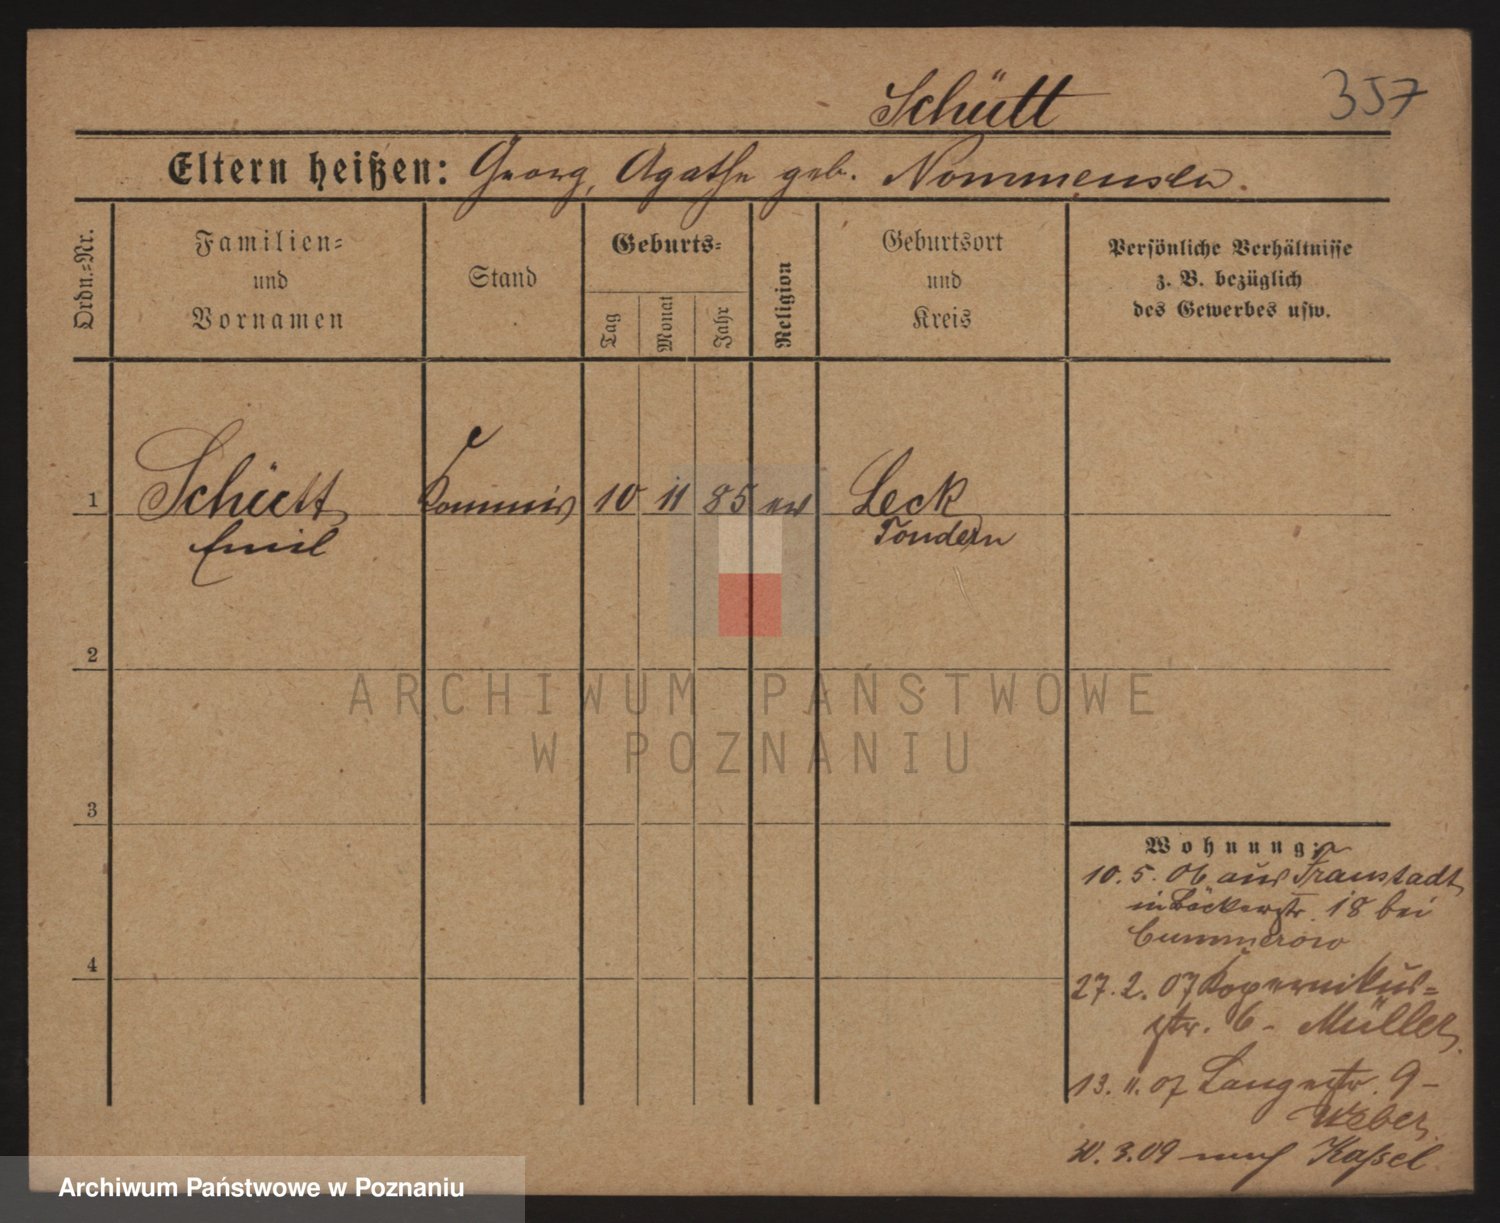 Schütt
357
Eltern heißen: Georg, Agathe geb. Nommensen.
Ordn.=Nr.
Familien=
und
Vornamen
Stand
Geburts=
Tag
Monat
Jahr
Religion
Geburtsort
und
Kreis
Persönliche Verhältnisse
z. B. bezüglich
des Gewerbes usw.
1 Schütt Kommis 10 11 85 ev Leck
Emil Tondern
2
3
4
Wohnung:
10. 5. 06 aus Fraustadt
in Bäckerstr. 18 bei
Cummerow
27. 2. 07 Kopernikus=
str. 6 - Müller
13. 11. 07 Langestr. 9 -
Weber
30. 3. 09 nach Kassel
ARCHIWUM PAŃSTWOWE
W POZNANIU
Archiwum Państwowe w Poznaniu